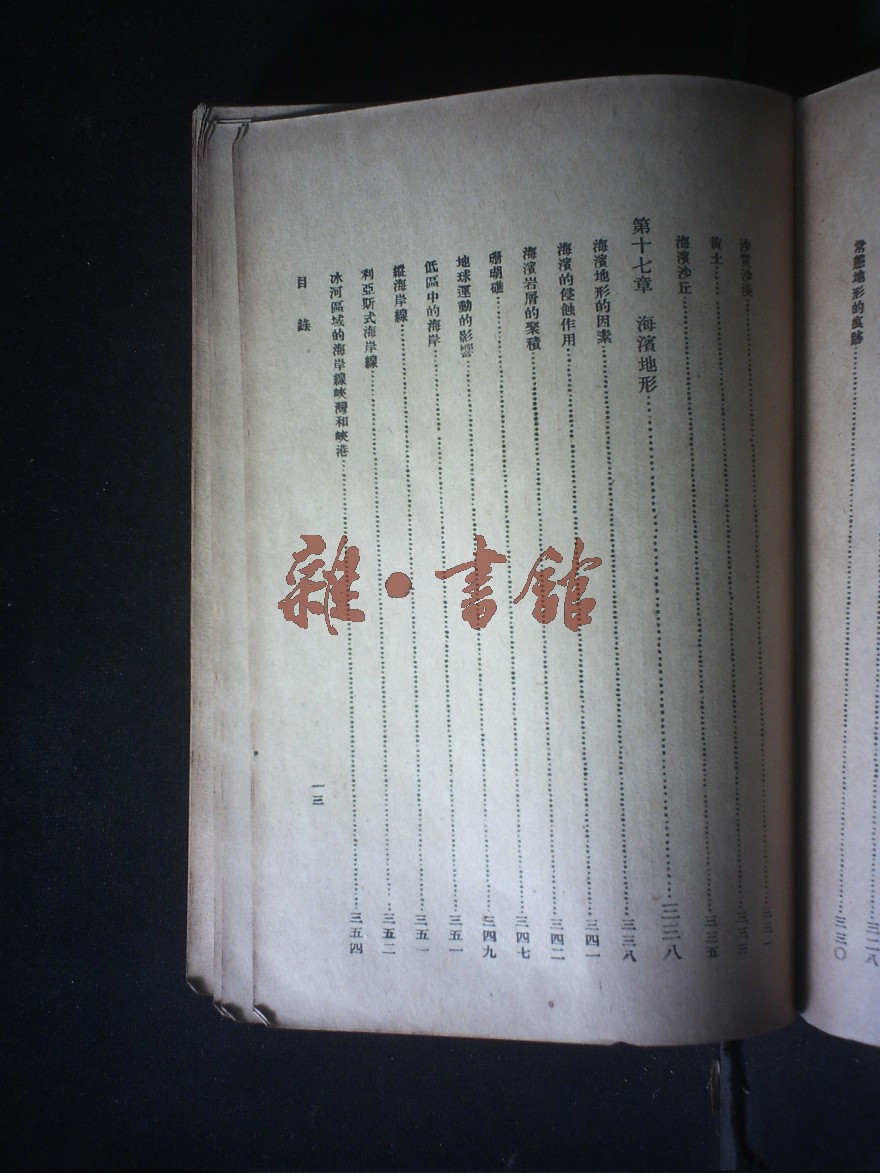 三二八
常態地形的痕跡……三三〇
沙質沙漠……三三一
黃土……三三三
海濱沙丘……三三五
第十七章 海濱地形……三三八
海濱地形的因素……三三八
海濱的侵蝕作用……三四一
海濱岩層的聚積……三四二
珊瑚礁……三四七
地球運動的影響……三四九
低區中的海岸……三五一
縱海岸線……三五一
利亞斯式海岸線……三五二
冰河區域的海岸線峽灣和峽港……三五四
目錄 一三
雜•書館